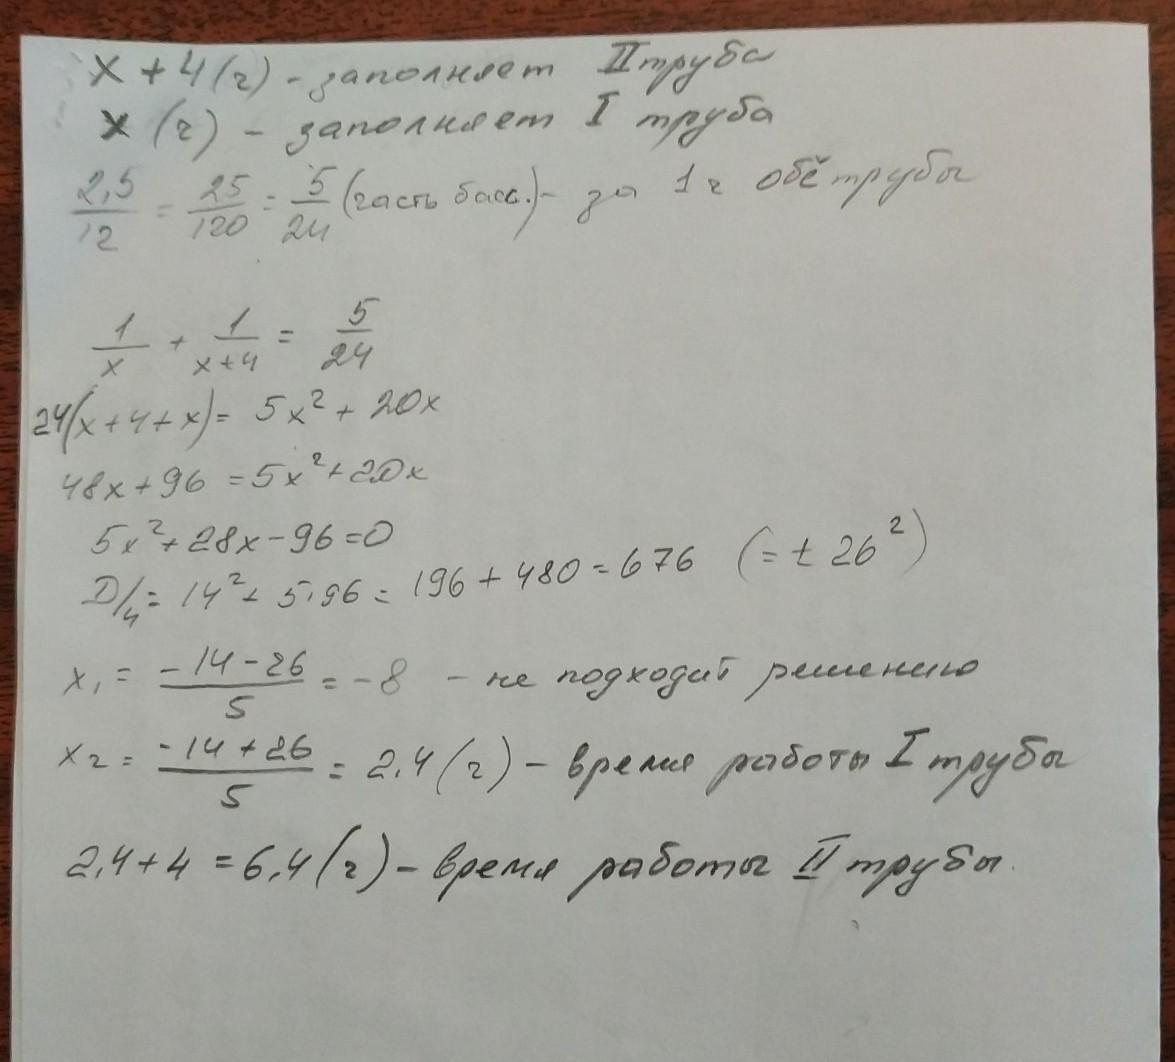 x + 4 (ч) - заполняет II труба
x (ч) - заполняет I труба
2,5/12 = 25/120 = 5/24 (часть басс.) - за 1 ч обе трубы
1/x + 1/x+4 = 5/24
24(x+4+x) = 5x² + 20x
48x + 96 = 5x² + 20x
5x² + 28x - 96 = 0
D/4 = 14² + 5·96 = 196 + 480 = 676 (= ± 26²)
x₁ = -14-26/5 = -8 - не подходит решению
x₂ = -14+26/5 = 2,4 (ч) - время работы I трубы
2,4 + 4 = 6,4 (ч) - время работы II трубы.